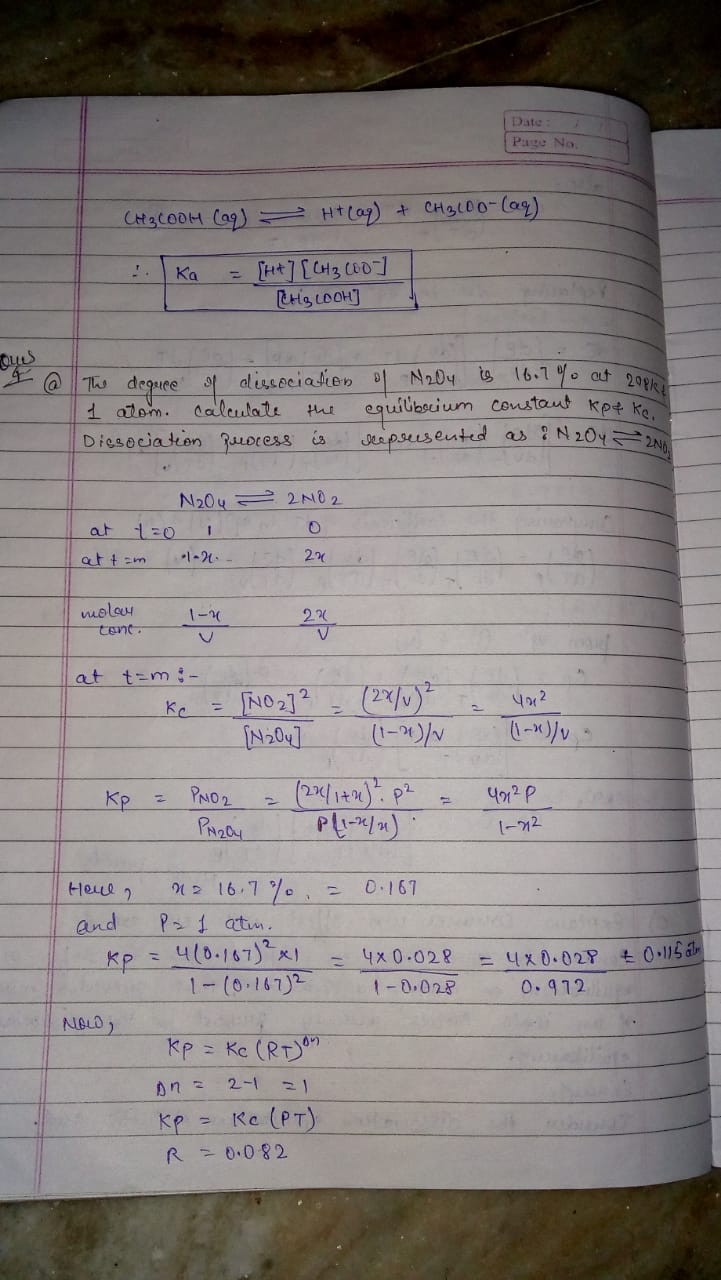 Date : / /
Page No.
CH3COOH (aq) ⇌ H+(aq) + CH3COO-(aq)
∴ Ka = [H+] [CH3COO-] / [CH3COOH]
Ques
4 (a) The degree of dissociation of N2O4 is 16.7 % at 298K &
1 atom. calculate the equilibrium constant Kp & Kc.
Dissociation process is represented as : N2O4 ⇌ 2NO2
N2O4 ⇌ 2NO2
at t=0 1 0
at t=m 1-x 2x
molar conc. 1-x/V 2x/V
at t=m :-
Kc = [NO2]²/[N2O4] = (2x/v)²/(1-x)/v = 4x²/(1-x)/v
Kp = PNO2/PN2O4 = (2x/1+x)². P²/P(1-x/x) = 4x²P/1-x²
Here, x = 16.7 % = 0.167
and P = 1 atm.
Kp = 4(0.167)² x1/1-(0.167)² = 4x0.028/1-0.028 = 4x0.028/0.972 = 0.115 atm
Now,
Kp = Kc (RT)Δn
Δn = 2-1 = 1
Kp = Kc (PT)
R = 0.082